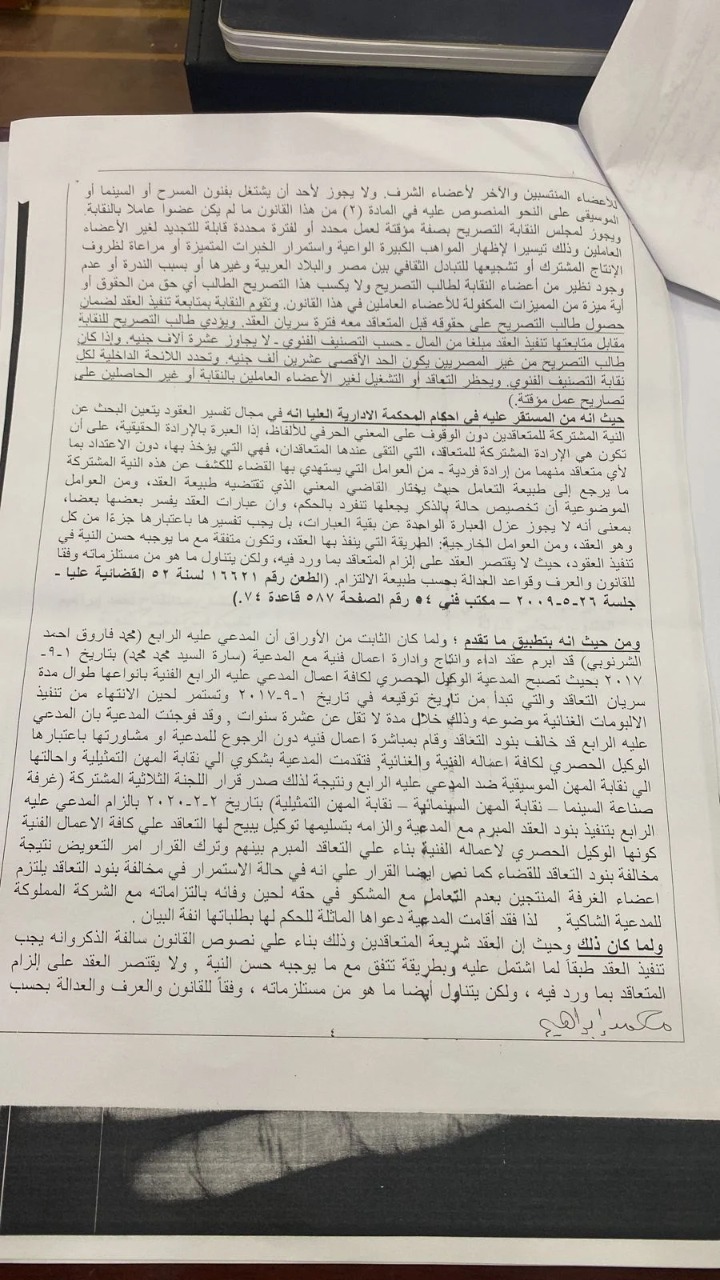 للأعضاء المنتسبين والآخر لأعضاء الشرف. ولا يجوز لأحد أن يشتغل بفنون المسرح أو السينما أو
الموسيقى على النحو المنصوص عليه في المادة (٢) من هذا القانون ما لم يكن عضوا عاملا بالنقابة.
ويجوز لمجلس النقابة التصريح بصفة مؤقتة لعمل محدد أو لفترة محددة قابلة للتجديد لغير الأعضاء
العاملين وذلك تيسيرا لإظهار المواهب الكبيرة الواعية واستمرار الخبرات المتميزة أو مراعاة لظروف
الإنتاج المشترك أو تشجيعها للتبادل الثقافي بين مصر والبلاد العربية وغيرها أو بسبب الندرة أو عدم
وجود نظير من أعضاء النقابة لطالب التصريح ولا يكسب هذا التصريح الطالب أي حق من الحقوق أو
أية ميزة من المميزات المكفولة للأعضاء العاملين في هذا القانون. وتقوم النقابة بمتابعة تنفيذ العقد لضمان
حصول طالب التصريح على حقوقه قبل المتعاقد معه فترة سريان العقد. ويؤدي طالب التصريح للنقابة
مقابل متابعتها تنفيذ العقد مبلغا من المال - حسب التصنيف الفنوي - لا يجاوز عشرة آلاف جنيه. وإذا كان
طالب التصريح من غير المصريين يكون الحد الأقصى عشرين ألف جنيه. وتحدد اللائحة الداخلية لكل
نقابة التصنيف الفنوي. ويحظر التعاقد أو التشغيل لغير الأعضاء العاملين بالنقابة أو غير الحاصلين على
تصاريح عمل مؤقتة.)
حيث انه من المستقر عليه في احكام المحكمة الادارية العليا انه في مجال تفسير العقود يتعين البحث عن
النية المشتركة للمتعاقدين دون الوقوف على المعني الحرفي للألفاظ، إذا العبرة بالإرادة الحقيقية، على أن
تكون هي الإرادة المشتركة للمتعاقد، التي التقى عندها المتعاقدان، فهي التي يؤخذ بها، دون الاعتداد بما
لأي متعاقد منهما من إرادة فردية - من العوامل التي يستهدي بها القضاء للكشف عن هذه النية المشتركة
ما يرجع إلى طبيعة التعامل حيث يختار القاضي المعني الذي تقتضيه طبيعة العقد، ومن العوامل
الموضوعية أن تخصيص حالة بالذكر يجعلها تنفرد بالحكم، وان عبارات العقد يفسر بعضها بعضا،
بمعنى أنه لا يجوز عزل العبارة الواحدة عن بقية العبارات، بل يجب تفسيرها باعتبارها جزءًا من كل
وهو العقد، ومن العوامل الخارجية: الطريقة التي ينفذ بها العقد، وتكون متفقة مع ما يوجبه حسن النية في
تنفيذ العقود، حيث لا يقتصر العقد على إلزام المتعاقد بما ورد فيه، ولكن يتناول ما هو من مستلزماته وفقا
للقانون والعرف وقواعد العدالة بحسب طبيعة الالتزام. (الطعن رقم ١٦٦٢١ لسنة ٥٢ القضائية عليا -
جلسة ٢٦-٥-٢٠٠٩ – مكتب فني ٥٤ رقم الصفحة ٥٨٧ قاعدة ٧٤.)
ومن حيث انه بتطبيق ما تقدم ؛ ولما كان الثابت من الأوراق أن المدعي عليه الرابع (محمد فاروق احمد
الشرنوبي) قد ابرم عقد اداء وانتاج وادارة اعمال فنية مع المدعية (سارة السيد محمد محمد) بتاريخ ١-٩-
٢٠١٧ بحيث تصبح المدعية الوكيل الحصري لكافة اعمال المدعي عليه الرابع الفنية بانواعها طوال مدة
سريان التعاقد والتي تبدأ من تاريخ توقيعه في تاريخ ١-٩-٢٠١٧ وتستمر لحين الانتهاء من تنفيذ
الالبومات الغنائية موضوعه وذلك خلال مدة لا تقل عن عشرة سنوات , وقد فوجئت المدعية بان المدعي
عليه الرابع قد خالف بنود التعاقد وقام بمباشرة اعمال فنيه دون الرجوع للمدعية او مشاورتها باعتبارها
الوكيل الحصري لكافة اعماله الفنية والغنائية, فتقدمت المدعية بشكوي الي نقابة المهن التمثيلية واحالتها
الي نقابة المهن الموسيقية ضد المدعي عليه الرابع ونتيجة لذلك صدر قرار اللجنة الثلاثية المشتركة (غرفة
صناعة السينما – نقابة المهن السينمائية – نقابة المهن التمثيلية) بتاريخ ٢-٢-٢٠٢٠ بالزام المدعي عليه
الرابع بتنفيذ بنود العقد المبرم مع المدعية والزامه بتسليمها توكيل يبيح لها التعاقد علي كافة الاعمال الفنية
كونها الوكيل الحصري لاعماله الفنية بناء علي التعاقد المبرم بينهم وترك القرار امر التعويض نتيجة
مخالفة بنود التعاقد للقضاء كما نص ايضا القرار علي انه في حالة الاستمرار في مخالفة بنود التعاقد يلتزم
اعضاء الغرفة المنتجين بعدم التعامل مع المشكو في حقه لحين وفائه بالتزاماته مع الشركة المملوكة
للمدعية الشاكية , لذا فقد أقامت المدعية دعواها الماثلة للحكم لها بطلباتها انفة البيان .
ولما كان ذلك وحيث إن العقد شريعة المتعاقدين وذلك بناء علي نصوص القانون سالفة الذكروانه يجب
تنفيذ العقد طبقاً لما اشتمل عليه وبطريقة تتفق مع ما يوجبه حسن النية , ولا يقتصر العقد على إلزام
المتعاقد بما ورد فيه ، ولكن يتناول أيضا ما هو من مستلزماته ، وفقاً للقانون والعرف والعدالة بحسب
محمد إبراهيم
٤